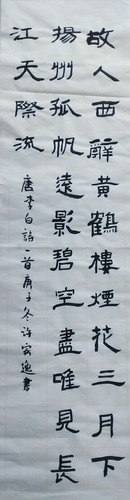 故人西辭黃鶴樓煙花三月下
揚州孤帆遠影碧空盡唯見長
江天際流
唐李白詩一首庚子冬許宏逸書